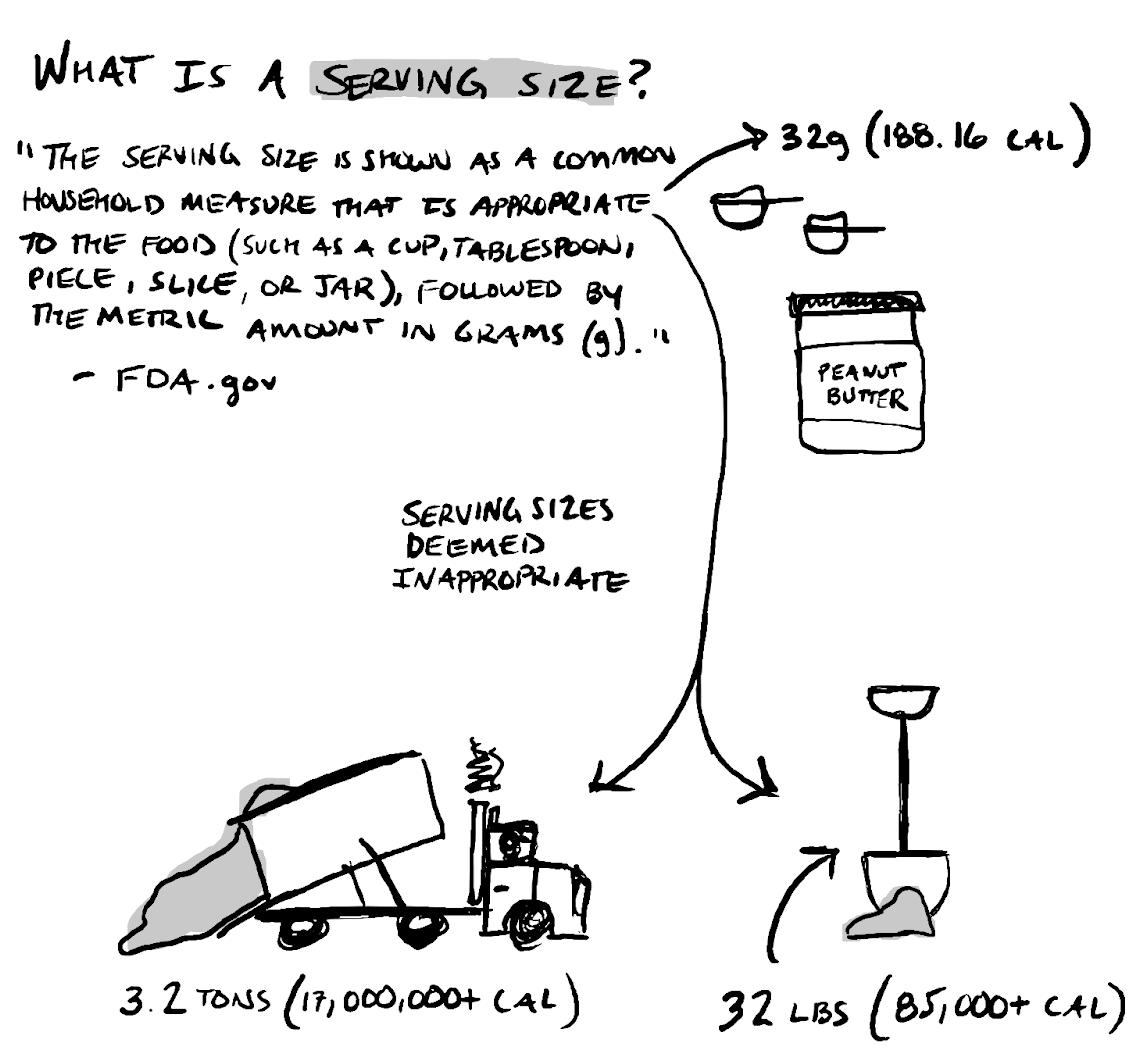 WHAT IS A SERVING SIZE?
"THE SERVING SIZE IS SHOWN AS A COMMON
HOUSEHOLD MEASURE THAT IS APPROPRIATE
TO THE FOOD (SUCH AS A CUP, TABLESPOON,
PIECE, SLICE, OR JAR), FOLLOWED BY
THE METRIC AMOUNT IN GRAMS (g)."
- FDA.gov
32g (188.16 CAL)
PEANUT
BUTTER
SERVING SIZES
DEEMED
INAPPROPRIATE
3.2 TONS (17,000,000+ CAL)
32 LBS (85,000+ CAL)